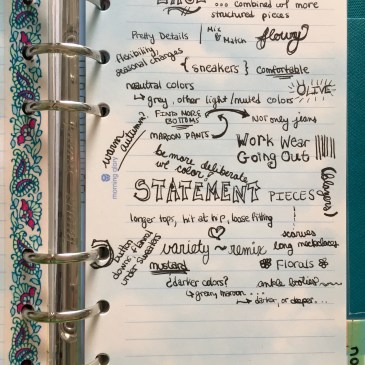 ... combined w/ more
structured pieces
Pretty Details | Mix & Match
flowy
flexibility,
seasonal changes
{ sneakers } comfortable
neutral colors
OLIVE
↳ grey, other light/muted colors
FIND MORE
BOTTOMS
Not only jeans
MAROON PANTS
warm
autumn?
Work Wear
Going Out
be more deliberate
w/ color?
STATEMENT PIECES
(blazers)
longer tops, hit at hip, loose fitting
scarves
long necklaces
button
downs: flannel
under sweaters
variety ~ remix
mustard
Florals
¿darker colors?
ankle booties~
↳ grey maroon ...
↳ darker, or deeper...